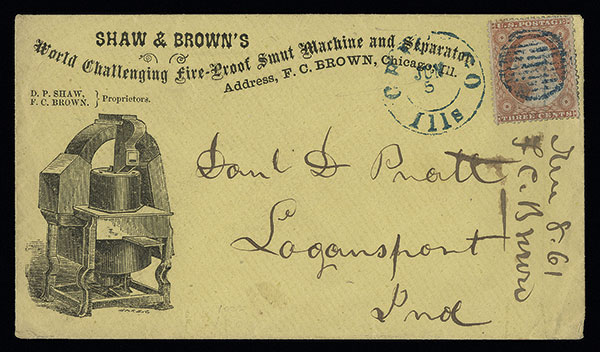 SHAW & BROWN'S
World Challenging Fire-Proof Smut Machine and Separator.
Address, F. C. BROWN, Chicago, Ill.
D. P. SHAW,
F. C. BROWN. } Proprietors.
U.S. POSTAGE
THREE CENTS
JUN
5
Ills
Danl D Pratt
Logansport
Ind
8. 61
F. C. Brown